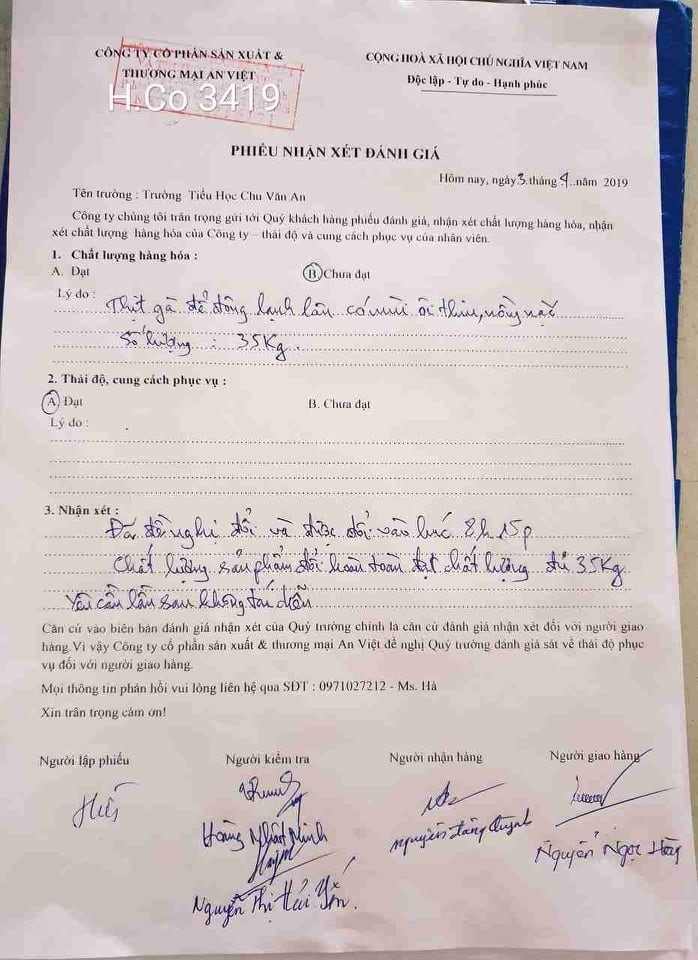 CÔNG TY CỔ PHẦN SẢN XUẤT &
THƯƠNG MẠI AN VIỆT
H.Co 3419
CỘNG HOÀ XÃ HỘI CHỦ NGHĨA VIỆT NAM
Độc lập - Tự do - Hạnh phúc
PHIẾU NHẬN XÉT ĐÁNH GIÁ
Hôm nay, ngày 3 tháng 4 năm 2019
Tên trường : Trường Tiểu Học Chu Văn An
Công ty chúng tôi trân trọng gửi tới Quý khách hàng phiếu đánh giá, nhận xét chất lượng hàng hóa, nhận
xét chất lượng hàng hóa của Công ty – thái độ và cung cách phục vụ của nhân viên.
1. Chất lượng hàng hóa :
A. Đạt B Chưa đạt
Lý do : Thịt gà để đông lạnh lâu có mùi ôi thiu, nồng nặc
Số lượng : 35Kg.
2. Thái độ, cung cách phục vụ :
A Đạt B. Chưa đạt
Lý do :
3. Nhận xét :
Đã đề nghị đổi và được đổi vào lúc 8h 15p
Chất lượng sản phẩm đổi hoàn toàn đạt chất lượng đủ 35Kg
Yêu cầu lần sau không tái diễn
Căn cứ vào biên bản đánh giá nhận xét của Quý trường chính là căn cứ đánh giá nhận xét đối với người giao
hàng.Vì vậy Công ty cổ phần sản xuất & thương mại An Việt đề nghị Quý trường đánh giá sát về thái độ phục
vụ đối với người giao hàng.
Mọi thông tin phản hồi vui lòng liên hệ qua SĐT : 0971027212 - Ms. Hà
Xin trân trọng cảm ơn!
Người lập phiếu Người kiểm tra Người nhận hàng Người giao hàng
Hoàng Nhật Minh
Nguyễn Đăng Quỳnh
Nguyễn Ngọc
Nguyễn Thị Hải Yến.